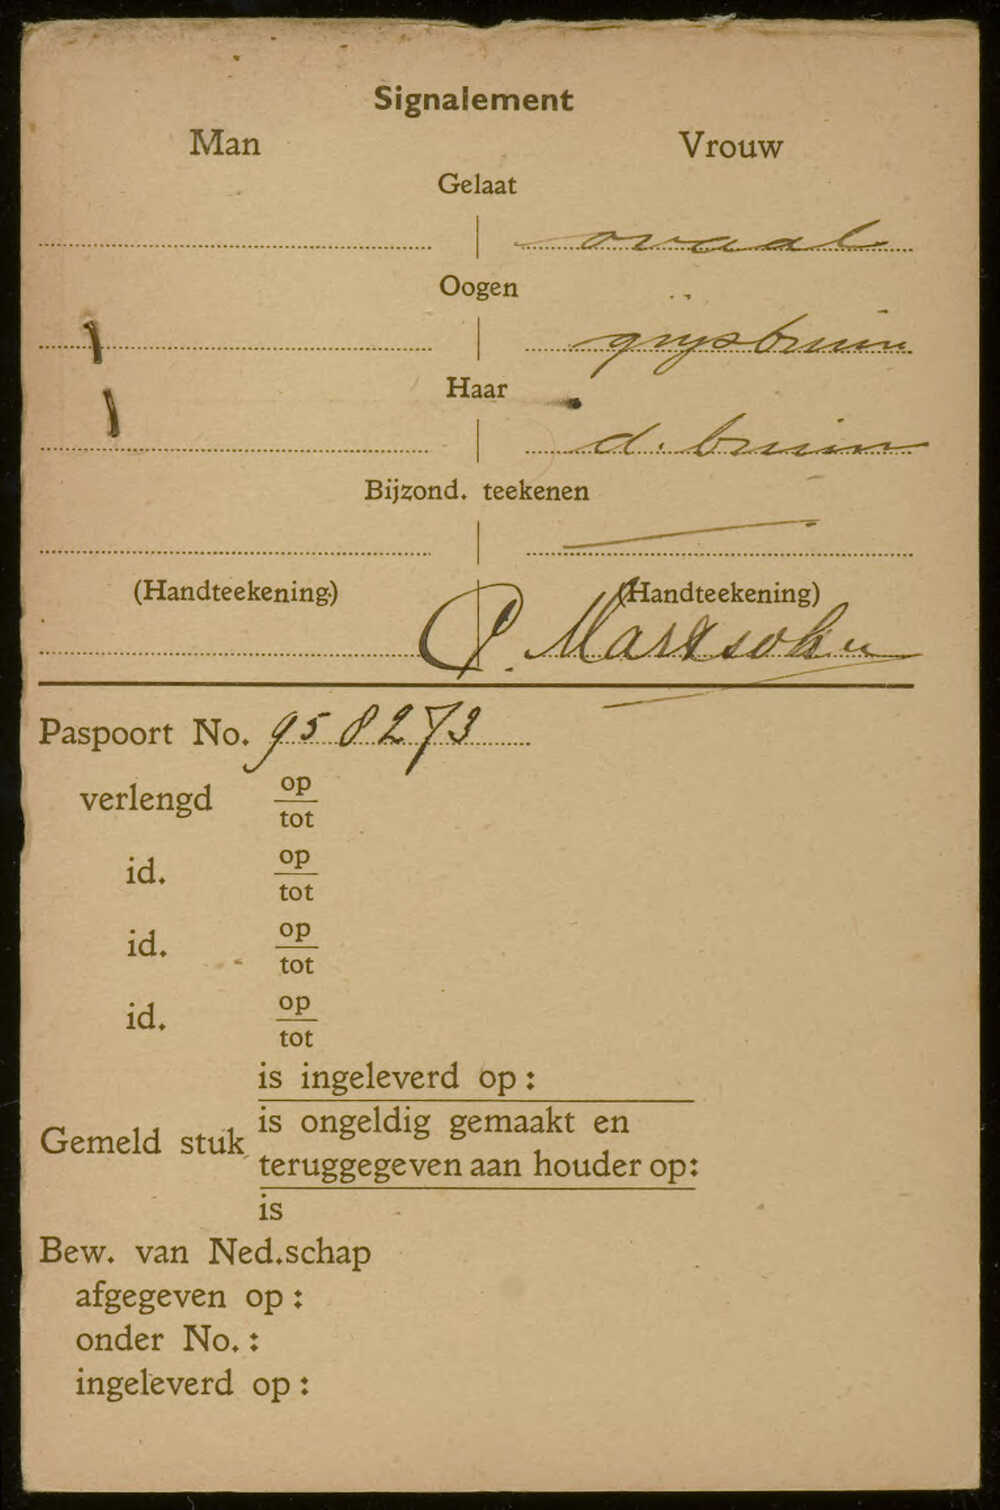 Signalement
Man Vrouw
Gelaat
ovaal
Oogen
grijsbruin
Haar
d. bruin
Bijzond. teekenen
(Handteekening) (Handteekening)
P. Marxsohn
Paspoort No. 958273
verlengd op
tot
id. op
tot
id. op
tot
id. op
tot
is ingeleverd op:
Gemeld stuk is ongeldig gemaakt en
teruggegeven aan houder op:
is
Bew. van Ned.schap
afgegeven op:
onder No.:
ingeleverd op: